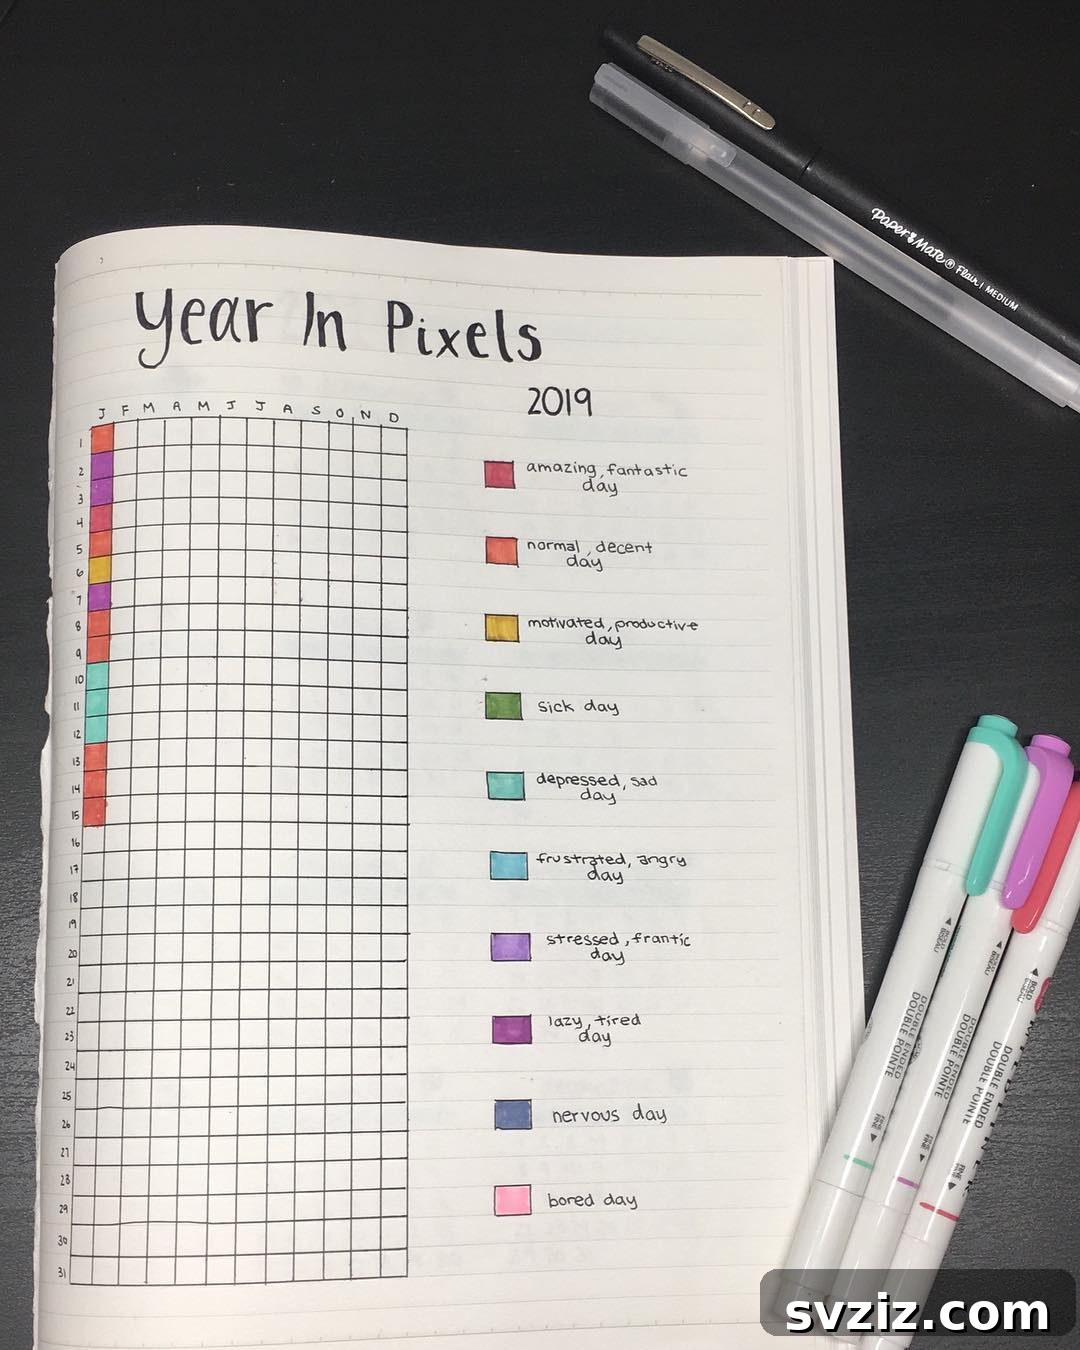 Year In Pixels
2019
J F M A M J J A S O N D
1
2
3
4
5
6
7
8
9
10
11
12
13
14
15
16
17
18
19
20
21
22
23
24
25
26
27
28
29
30
31
amazing, fantastic
day
normal, decent
day
motivated, productive
day
sick day
depressed, sad
day
frustrated, angry
day
stressed, frantic
day
lazy, tired
day
nervous day
bored day
Paper Mate® Flair! MEDIUM
DOUBLE ENDED
DOUBLE POINTE
DOUBLE ENDED
DOUBLE POINTE
BOLD
DOUBLE ENDED
DOUBLE POINTE
FINE
svziz.com